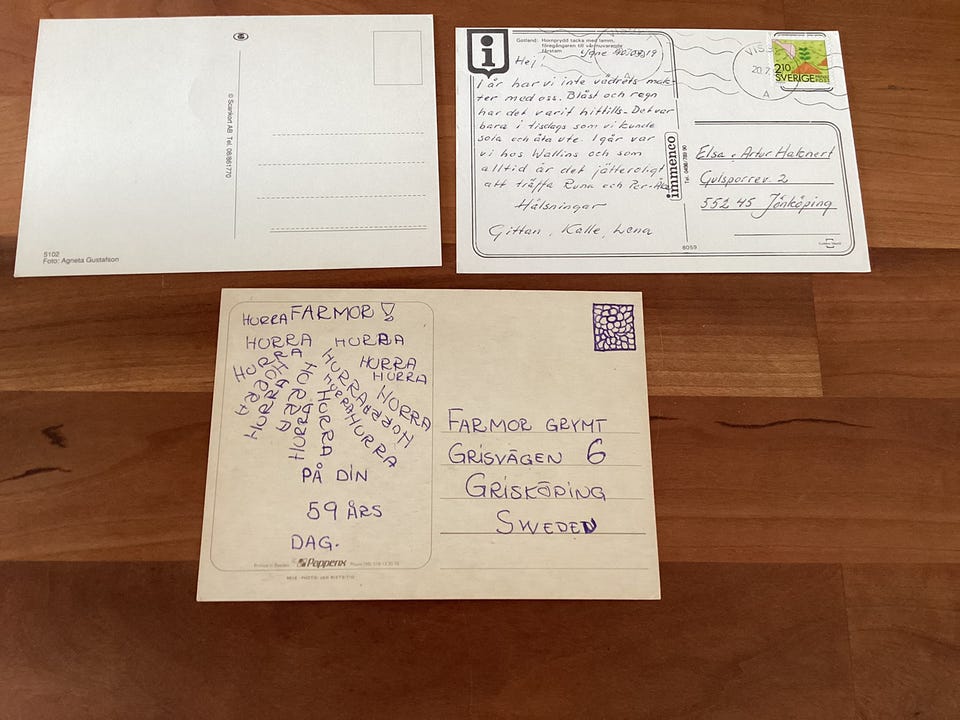 © Scankort AB Tel. 08/861770
5102
Foto: Agneta Gustafson
i
Gotland: Hornprydd tacka med lamm,
föregångaren till vår nuvarande
fårstam
Hej!
I år har vi inte vädrets mak-
ter med oss. Blåst och regn
har det varit hittills. Det var
bara i tisdags som vi kunde
sola och äta ute. I går var
vi hos Wallins och som
alltid är det jätteroligt
att träffa Runa och Per-Åke
Hälsningar
Gittan, Kalle, Lena
immenco
8059
20.7
A
2 10
SVERIGE
Elsa o Artur
552 45 Jönköping
HURRA FARMOR!
HURRA HURRA
HURRA HURRA
HURRA
HURRA
HURRA
HURRA
HURRA
HURRA
HURRA
HURRA
HURRA
HURRA
HURRA
HURRA
PÅ DIN
59 ÅRS
DAG.
Printed in Sweden Pappenx
FARMOR GRYMT
GRISVÄGEN 6
GRISKÖPING
SWEDEN